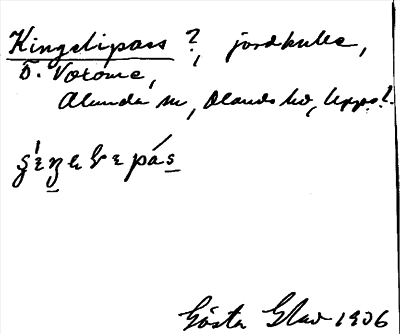 Kingelipass ?, jordkulle,
Ö. Voxome,
Alunda sn, Olands hd, Upps. l.
Gösta Glad 1906